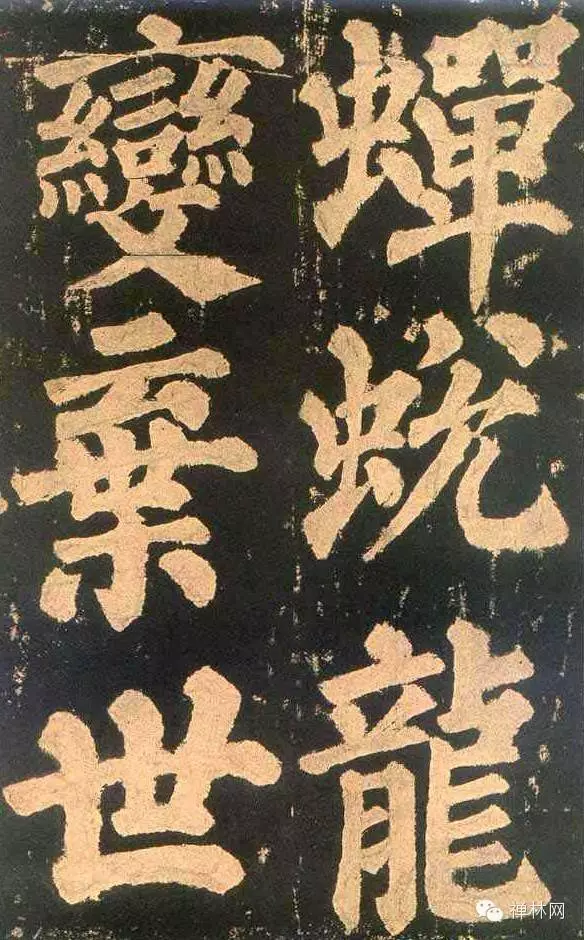 蟬蛻龍
變棄世
禅林网